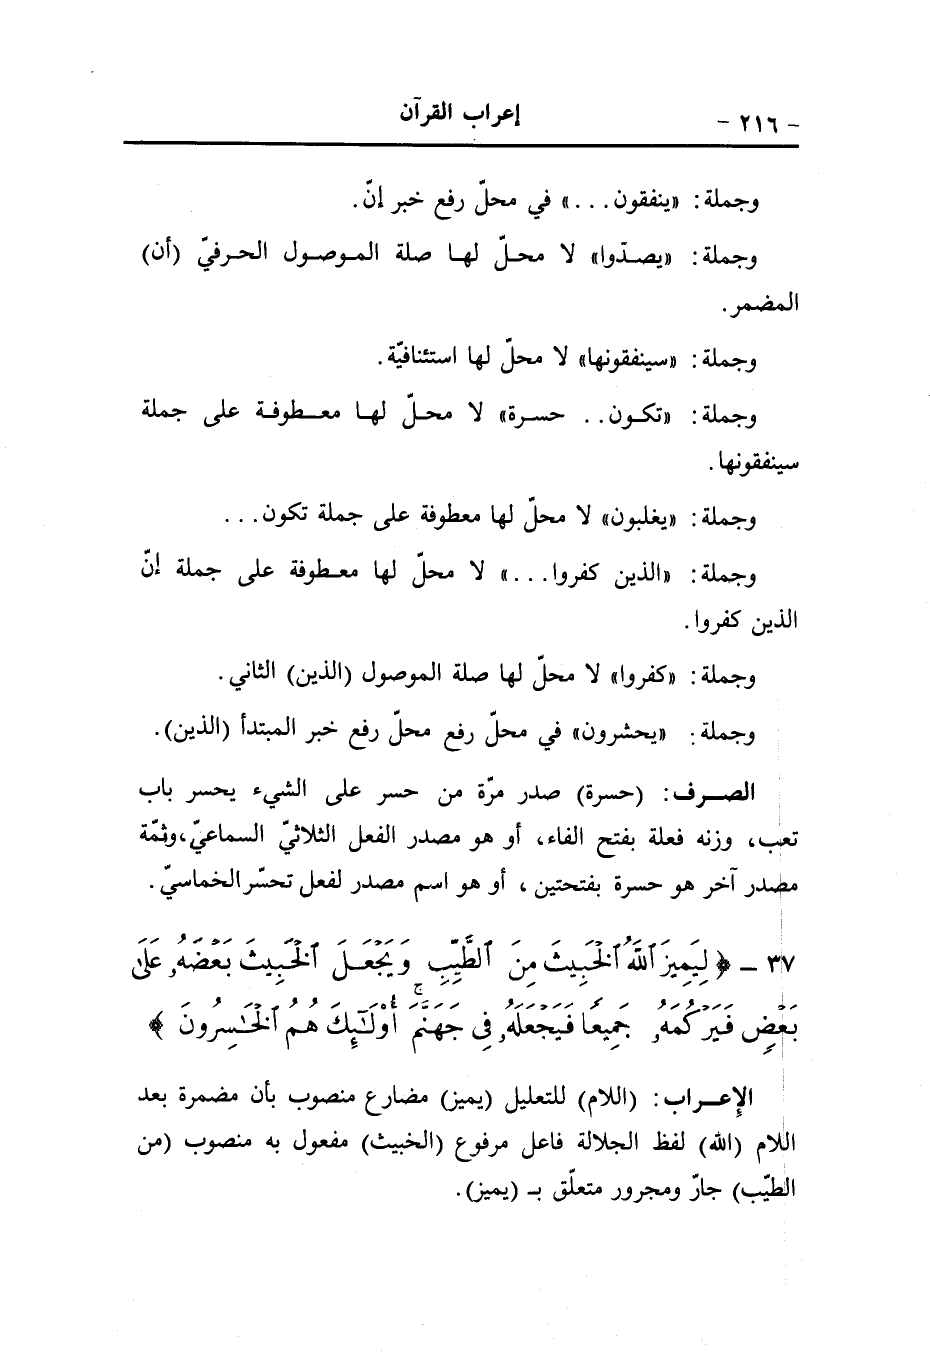 - ٢١٦ - إعراب القرآن
وجملة: «ينفقون...» في محلّ رفع خبر إنّ.
وجملة: «يصدّوا» لا محلّ لها صلة الموصول الحرفيّ (أن)
المضمر.
وجملة: «سينفقونها» لا محلّ لها استئنافيّة.
وجملة: «تكون.. حسرة» لا محلّ لها معطوفة على جملة
سينفقونها.
وجملة: «يغلبون» لا محلّ لها معطوفة على جملة تكون...
وجملة: «الذين كفروا...» لا محلّ لها معطوفة على جملة إنّ
الذين كفروا.
وجملة: «كفروا» لا محلّ لها صلة الموصول (الذين) الثاني.
وجملة: «يحشرون» في محلّ رفع محلّ رفع خبر المبتدأ (الذين).
الصرف: (حسرة) صدر مرّة من حسر على الشيء يحسر باب
تعب، وزنه فعلة بفتح الفاء، أو هو مصدر الفعل الثلاثيّ السماعيّ،وثمّة
مصدر آخر هو حسرة بفتحتين ، أو هو اسم مصدر لفعل تحسّر الخماسيّ.
٣٧ - ﴿ لِيَمِيزَ ٱللَّهُ ٱلْخَبِيثَ مِنَ ٱلطَّيِّبِ وَيَجْعَلَ ٱلْخَبِيثَ بَعْضَهُۥ عَلَىٰ
بَعْضٍ فَيَرْكُمَهُۥ جَمِيعًا فَيَجْعَلَهُۥ فِى جَهَنَّمَ ۚ أُوْلَٰٓئِكَ هُمُ ٱلْخَٰسِرُونَ ﴾
الإعراب: (اللام) للتعليل (يميز) مضارع منصوب بأن مضمرة بعد
اللام (الله) لفظ الجلالة فاعل مرفوع (الخبيث) مفعول به منصوب (من
الطيّب) جارّ ومجرور متعلّق بـ (يميز).